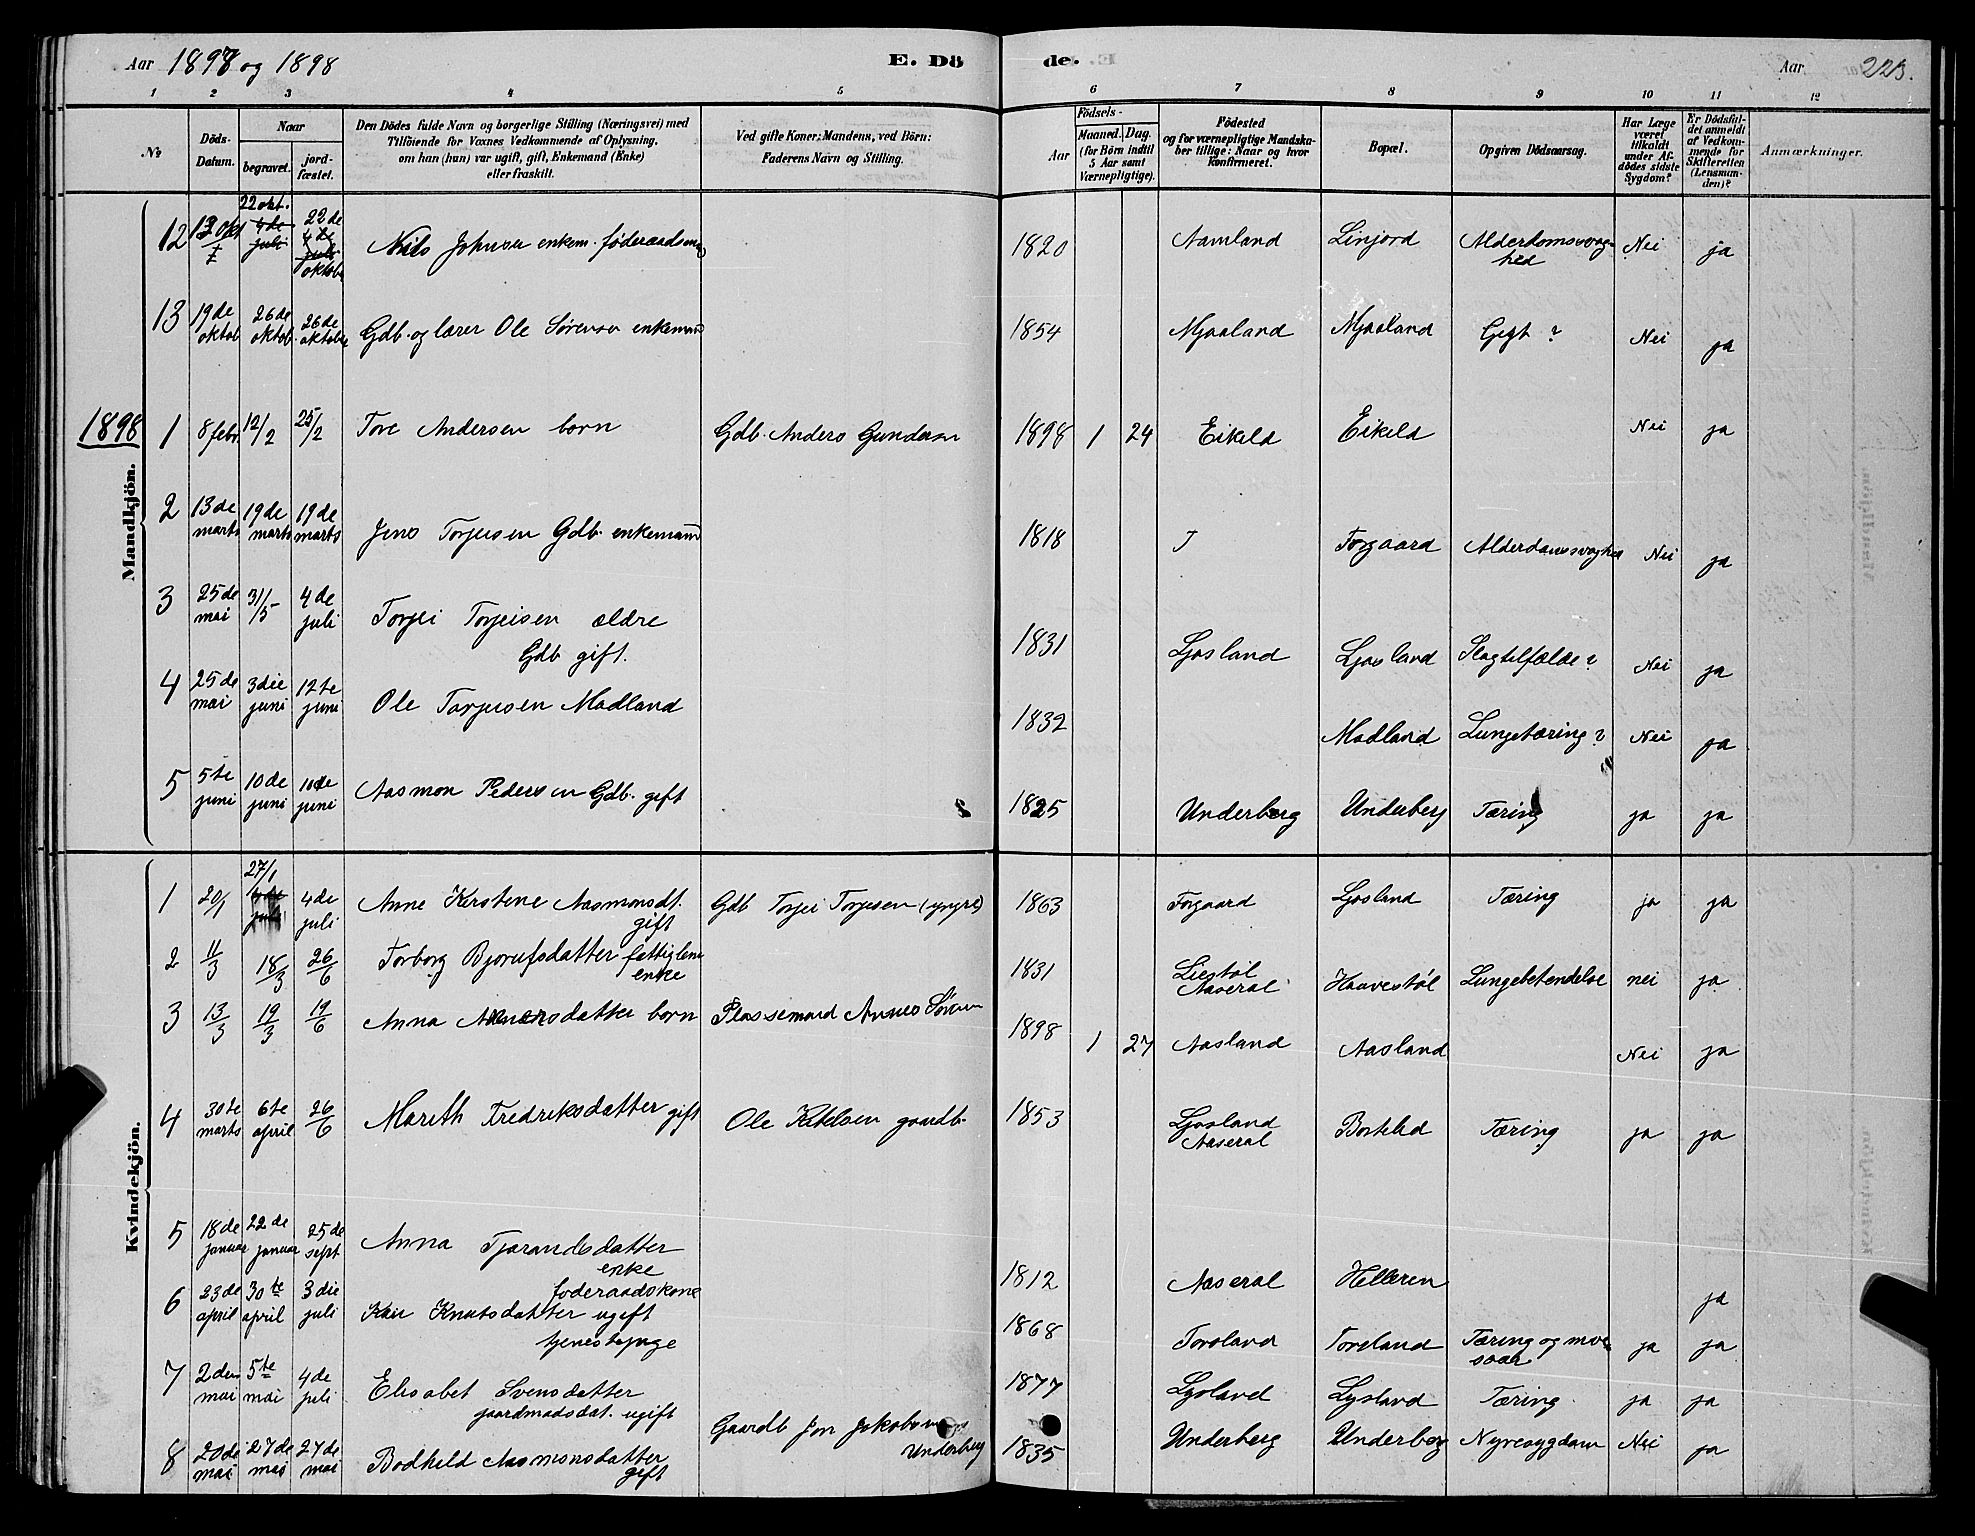 Aar 1897 og 1898 E. Dö de. Aar 223.
1 2 3 4 5 6 7 8 9 10 11 12
No Döds-Datum. Naar begravet. jordfæstet. Den Dödes fulde Navn og borgerlige Stilling (Næringsvei) med Tilföiende for Voxnes Vedkommende af Oplysning, om han (hun) var ugift, gift, Enkemand (Enke) eller fraskilt. Ved gifte Koner: Mandens, ved Börn: Faderens Navn og Stilling. Födsels- Aar Maaned. Dag. (for Börn indtil 5 Aar samt Værnepligtige). Födested og for værnepligtige Mandskaber tillige: Naar og hvor Konfirmeret. Bopæl. Opgiven Dödsaarsag. Har Læge været tilkaldt under Afdödes sidste Sygdom? Er Dödsfaldet anmeldt af Vedkommende for Skifteretten (Lensmanden)? Anmærkninger.
Mandkjön.
12 13 okt 22 okt. 4de juli 22 de 4 de juli oktob Johnsen enkem. føderaadsmand 1820 Aamland Linjord Alderdomsvaghed Nei ja
13 19 de oktob 26 de oktob. 26 de oktober Gdb. og lærer Ole Sørensen enkemand 1854 Mjaaland Mjaaland Gigt ? Nei ja
1898
1 8 febr. 12/2 25/2 Tore Andersen barn Gdb. Anders Gundersen 1898 1 24 Eikeld Eikeld Nei ja
2 13 de marts 19 de marts 19 de marts Jens Torjusen Gdb. enkemand 1818 Forgaard Alderdomsvaghed Nei ja
3 25 de mai 31/5 4 de juli Torjei Torjeisen ældre Gdb gift. 1831 Ljosland Ljosland Slagtilfælde ? Nei ja
4 25 de mai 3 die juni 12 te juni Ole Torjusen Madland 1832 Madland Lungetæring ? Nei ja
5 5 te juni 10 de juni 10 de juni Aasmon Pedersen Gdb. gift 1825 Underberg Underberg Tæring ja ja
Kvindekjön.
1 20/1 27/1 4 de juli Anne Kirstene Aasmonsdt. gift Gdb Torjei Torjeisen (yngre) 1863 Forgaard Ljosland Tæring ja ja
2 11/3 18/3 26/6 Torborg Bjorufsdatter fattiglem enke 1831 Liestøl Aaseral Haavestøl Lungebetendelse nei ja
3 13/3 19/3 19/6 Anna datter barn Plassemand 1898 1 27 Aasland Aasland Nei ja
4 30 te marts 6 te april 26/6 Mareth Fredriksdatter gift Ole Ketelsen gaardb. 1853 Ljosland Aaseral Borteld Tæring ja ja
5 18 de januar 22 de januar 25 de sept Anna Tjarandsdatter enke føderaadskone 1812 Aaseral Helleren ja
6 23 de april 30 te april 3 die juli Kari Knutsdatter ugift tjenestepige 1868 Toroland Toreland Tæring og ja ja
7 2 den mai 5 te mai 4 de juli Elisabet Svensdatter gaardmadsdat. ugift 1877 Lysland Lysland Tæring ja ja
8 20 de mai 27 de mai 27 de mai Bodheld Aasmonsdatter gift Gaardb Jon Jakobsen Underberg 1835 Underberg Underberg Nyresygdom Nei ja